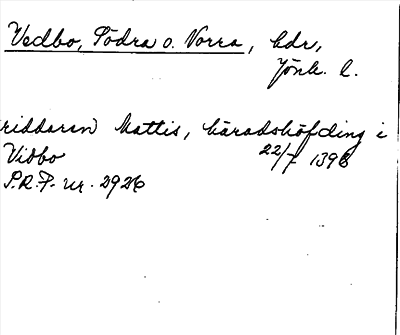 Vedbo, Södra o. Norra, hdr,
Jönk. l.
riddaren Mattis, häradshöfding i
Vidbo 22/7 1396
P.R.P. nr. 2926